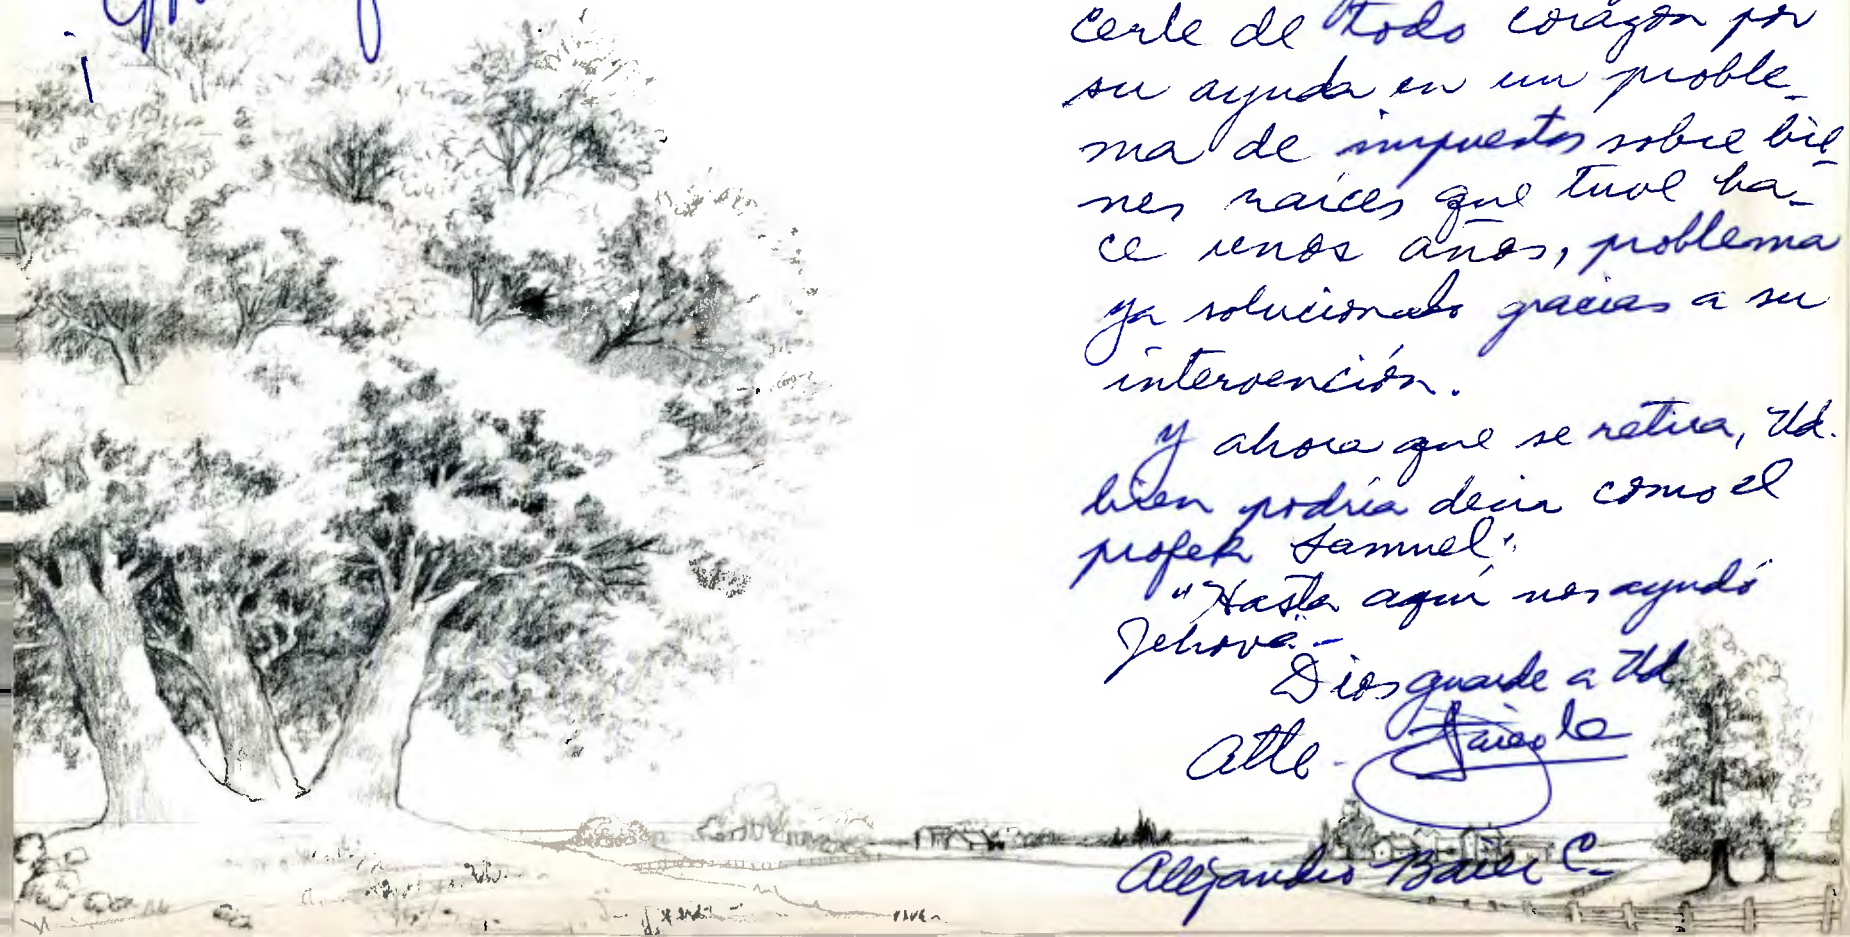 cerle de todo corazón por
su ayuda en un proble-
ma de impuestos sobre bie-
nes raíces que tuve ha-
ce unos años, problema
ya solucionado gracias a su
intervención.
Y ahora que se retira, Ud.
bien podría decir como el
profeta Samuel:
"Hasta aquí nos ayudó
Jehová"-
Dios guarde a Ud.
Atte.
Alejandro Baier C-